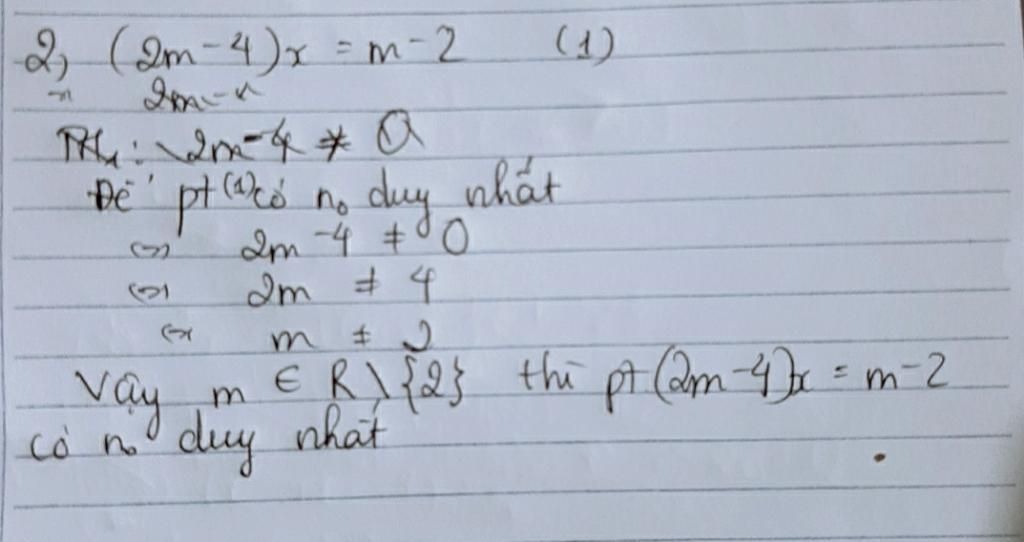 2, (2m-4)x = m-2 (1)
2m-x
TH1: 2m-4 ≠ 0
Để pt (1) có no duy nhất
⇔ 2m-4 ≠ 0
⇔ 2m ≠ 4
⇔ m ≠ 2
Vậy m ∈ R\{2} thì pt (2m-4)x = m-2
có no duy nhất